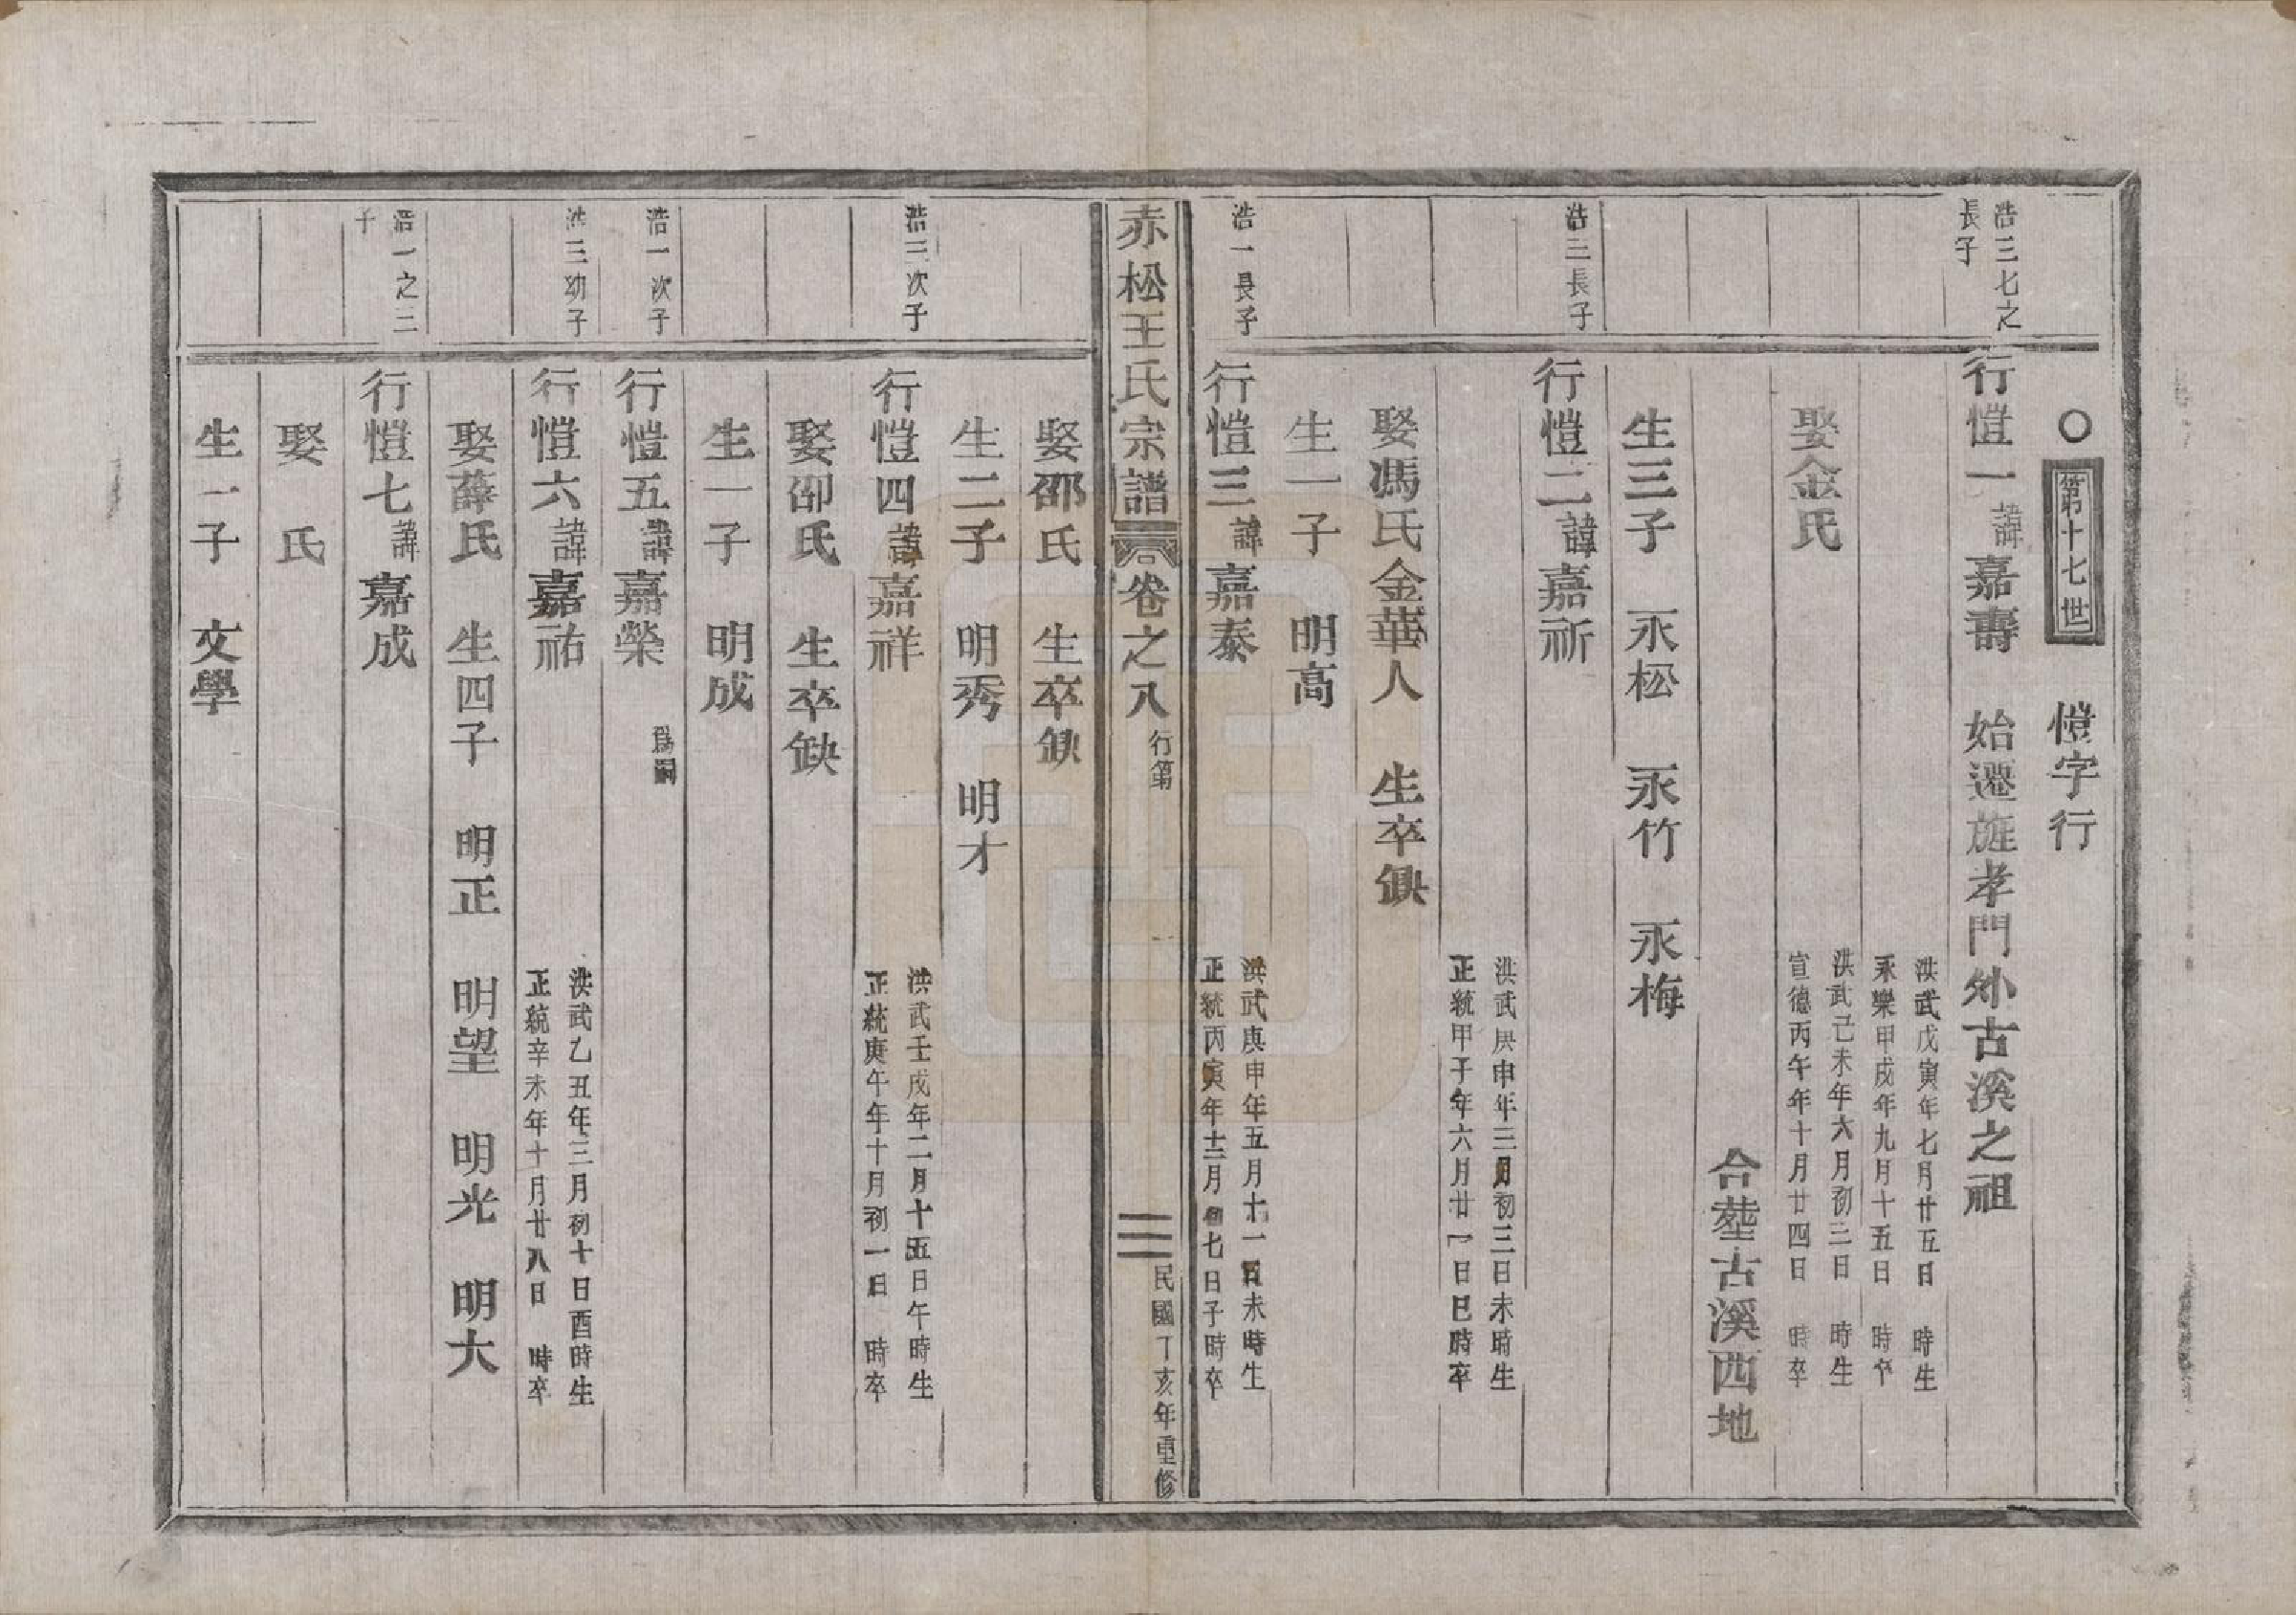 ○第十七世 愷字行
浩三七之長子
行愷一諱嘉壽 始遷旌孝門外古溪之祖
洪武戊寅年七月廿五日 時生
永樂甲戌年九月十五日 時卒
娶金氏
洪武己未年六月初三日 時生
宣德丙午年十月廿四日 時卒
合塟古溪西地
生三子 永松 永竹 永梅
浩三長子
行愷二諱嘉祈
洪武庚申年三月初三日未時生
正統甲子年六月廿一日巳時卒
娶馮氏金華人 生卒缺
生一子 明高
浩一長子
行愷三諱嘉泰
洪武庚申年五月十一日未時生
正統丙寅年十二月初七日子時卒
赤松王氏宗譜 卷之八 行第 三 民國丁亥年重修
娶邵氏 生卒缺
生二子 明秀 明才
浩三次子
行愷四諱嘉祥
洪武壬戌年二月十五日午時生
正統庚午年十月初一日 時卒
娶邵氏 生卒缺
生一子 明成
浩一次子
行愷五諱嘉榮 爲嗣
浩三幼子
行愷六諱嘉祐
洪武乙丑年三月初十日酉時生
正統辛未年十月廿八日 時卒
娶薛氏 生四子 明正 明望 明光 明大
浩一之三子
行愷七諱嘉成
娶 氏
生一子 文學